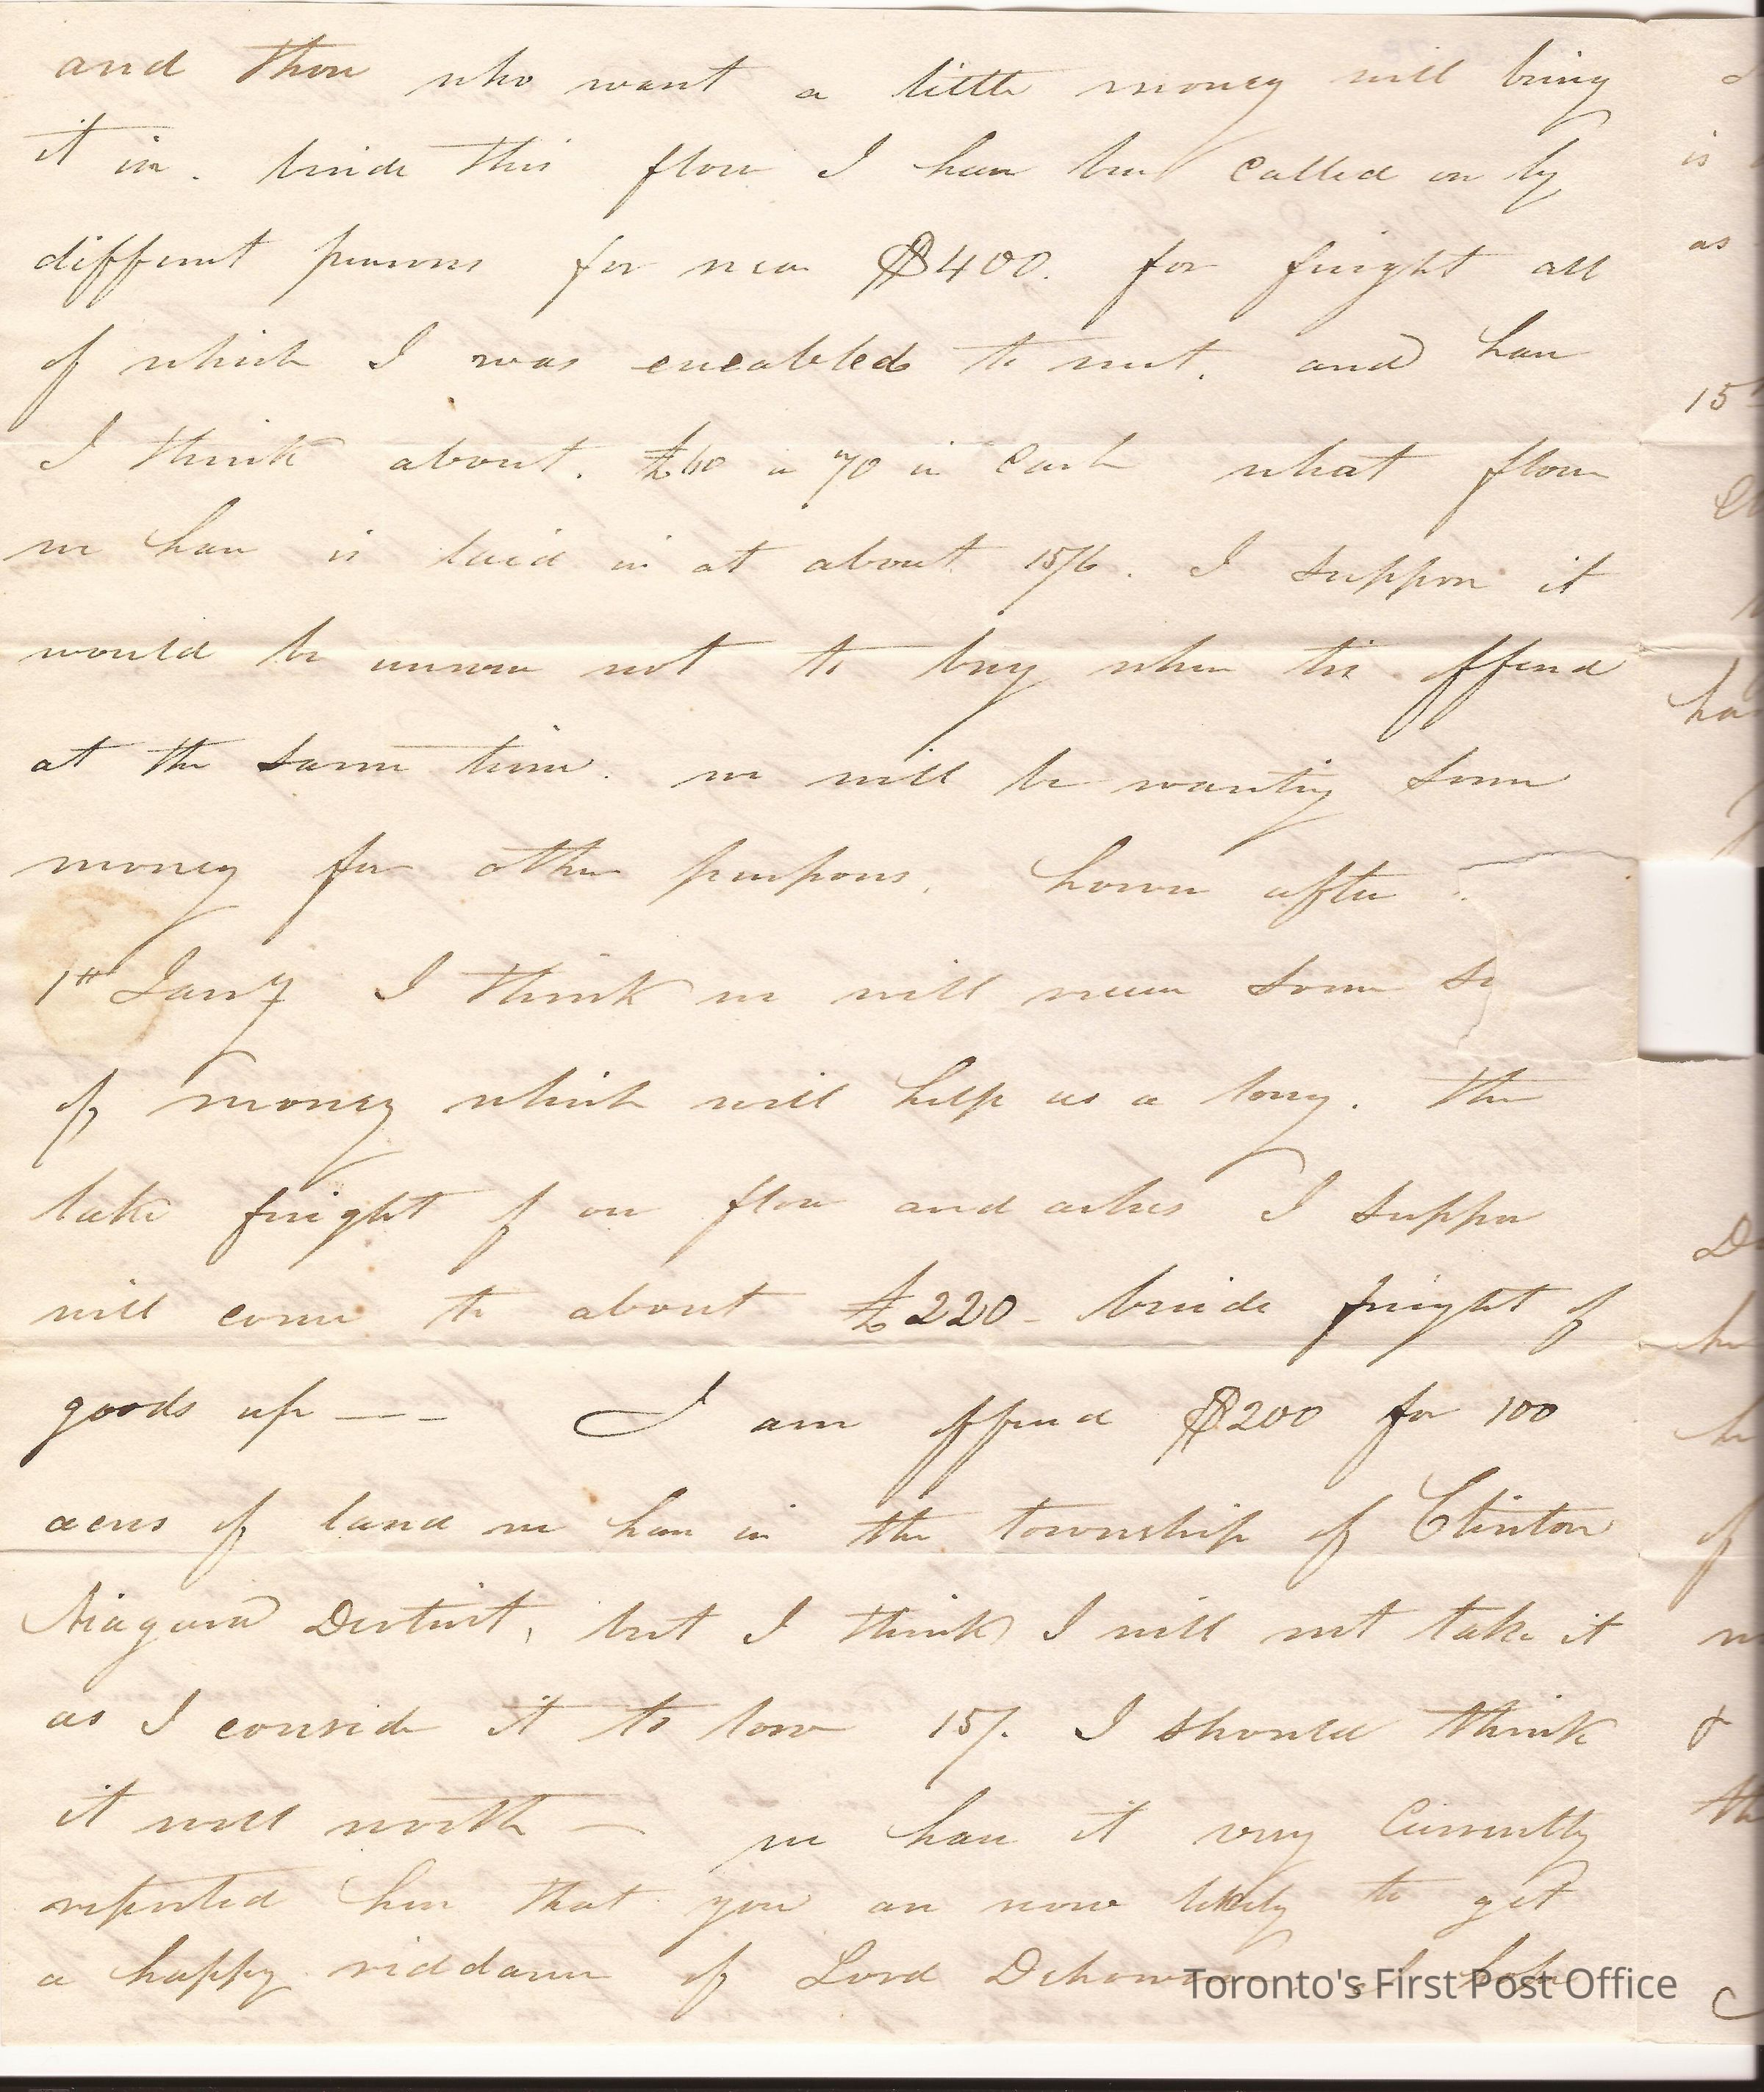 and those who want a little money will bring
it in. beside this flour I have been called on by
different persons for near $400. for freight all
of which I was eneabled to meet. and have
I think about. £60 a 70 in Cash what flour
we have is laid in at about 15/6. I suppose it
would be unwise not to buy when tis offered
at the same time. we will be wanting some
money for other purposes. however after
1st Jany I think we will receive some
of money which will help us a long. The
lake freight of our flour and ashes I suppose
will come to about £220 - beside freight of
goods up — - I am offered $200 for 100
acres of land we have in the township of Clinton
Niagara District, but I think I will not take it
as I consider it to low 15/. I should think
it well worth — we have it very Currently
reported here that you are now likely to get
a happy riddance of Lord Dehousie I hope
Toronto's First Post Office
15
has
is
as
of